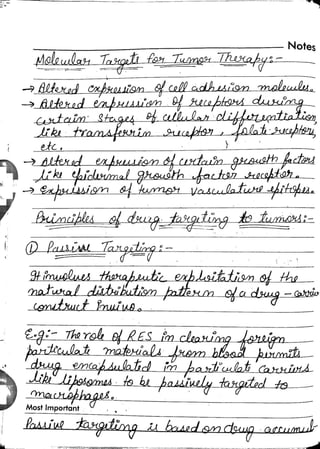 Notes
Molecular Targets for Tumor Therapy:-
→ Altered expression of cell adhesion molecules.
→ Altered expression of receptors during
certain stages of cellular differentiation,
like transferrin receptor, folate receptors,
etc.
→ Altered expression of certain growth factors
like epidermal growth factor receptor.
→ Expression of tumor vasculature epitopes.
Principles of drug targeting to tumors:-
① Passive Targeting:-
It involves therapeutic exploitation of the
natural distribution pattern of a drug - carrier
construct Invivo.
E.g:- The role of RES in clearing foreign
particulate materials from blood permits
drug encapsulated in particulate carriers
like liposomes to be passively targeted to
macrophages.
Most Important
Passive targeting is based on drug accumul